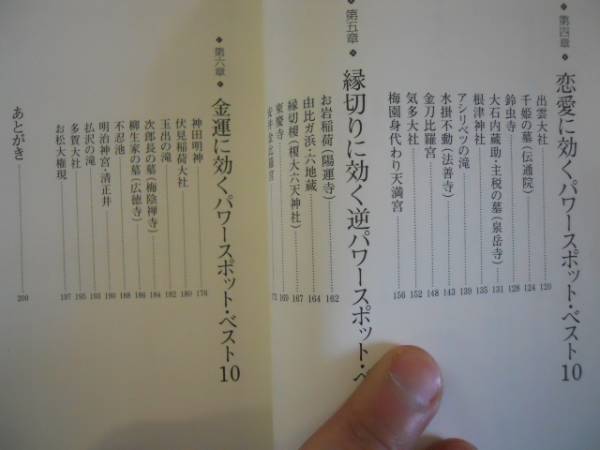 第四章
恋愛に効くパワースポット・ベスト10
出雲大社 120
千姫の墓(伝通院) 124
鈴虫寺 128
大石内蔵助・主税の墓(泉岳寺) 131
根津神社 135
アシリベツの滝 139
水掛不動(法善寺) 143
金刀比羅宮 148
気多大社 152
梅園身代わり天満宮 156
第五章
縁切りに効く逆パワースポット・ベ
お岩稲荷(陽運寺) 162
由比ガ浜・六地蔵 164
縁切榎(榎大六天神社) 167
東慶寺 169
第六章
金運に効くパワースポット・ベスト10
神田明神 178
伏見稲荷大社 180
玉出の滝 182
次郎長の墓(梅陰禅寺) 184
柳生家の墓(広徳寺) 186
不忍池 188
明治神宮・清正井 190
払沢の滝 193
多賀大社 195
お松大権現 197
あとがき 200